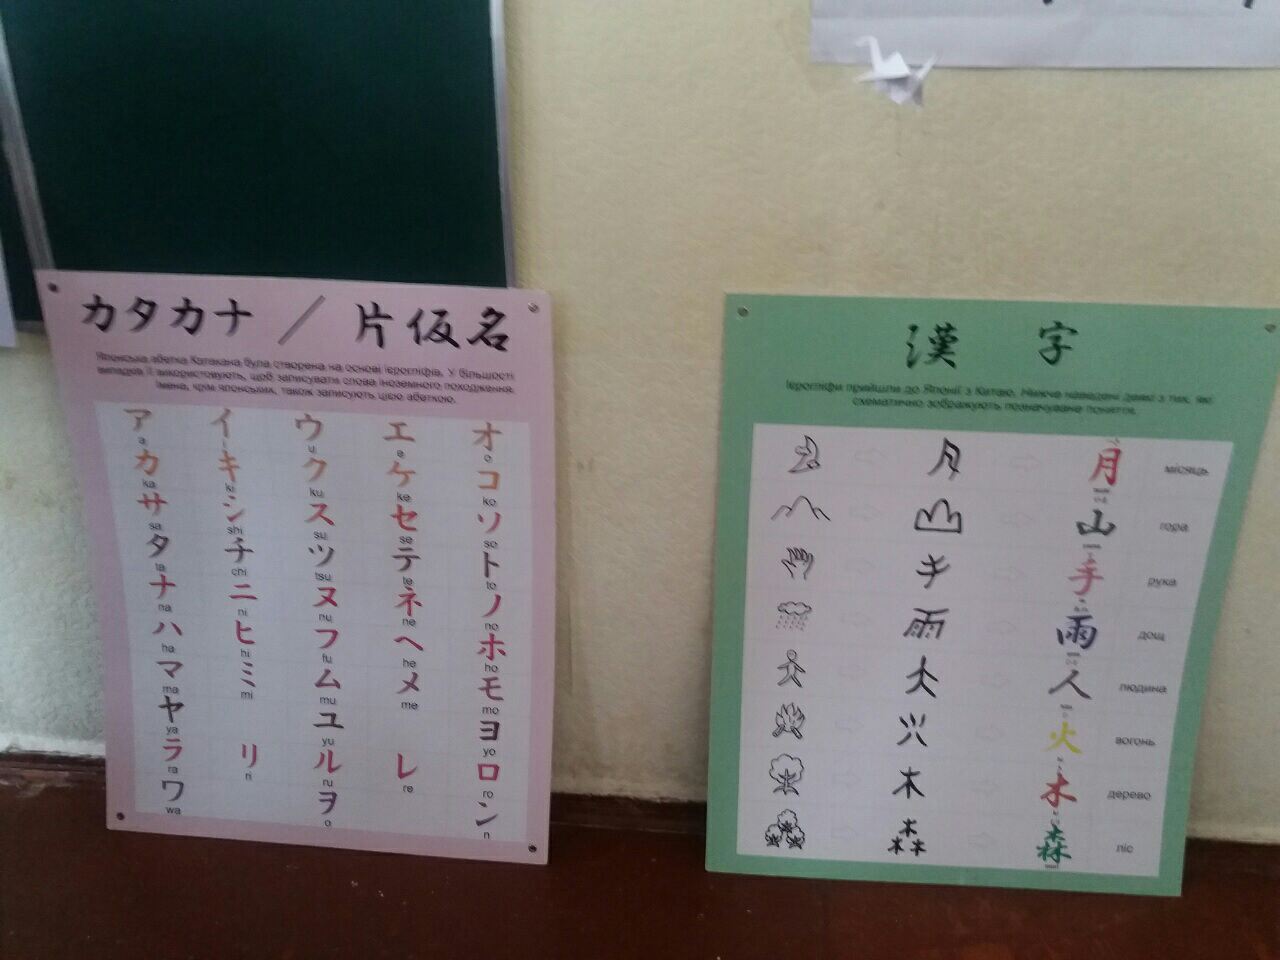 カタカナ / 片仮名
Японська абетка Катакана була створена на основі ієрогліфів. У більшості
випадків її використовують, щоб записувати слова іноземного походження.
Імена, крім японських, також записують цією абеткою.
ア イ ウ エ オ
a i u e o
カ キ ク ケ コ
ka ki ku ke ko
サ シ ス セ ソ
sa shi su se so
タ チ ツ テ ト
ta chi tsu te to
ナ ニ ヌ ネ ノ
na ni nu ne no
ハ ヒ フ ヘ ホ
ha hi fu he ho
マ ミ ム メ モ
ma mi mu me mo
ヤ ユ ヨ
ya yu yo
ラ リ ル レ ロ
ra ri ru re ro
ワ ヲ ン
wa o n
漢字
Ієрогліфи прийшли до Японії з Китаю. Нижче наведені деякі з тих, які
схематично зображують позначуване поняття.
月 місяць
山 гора
手 рука
雨 雨 дощ
人 людина
火 вогонь
木 木 дерево
森 森 ліс